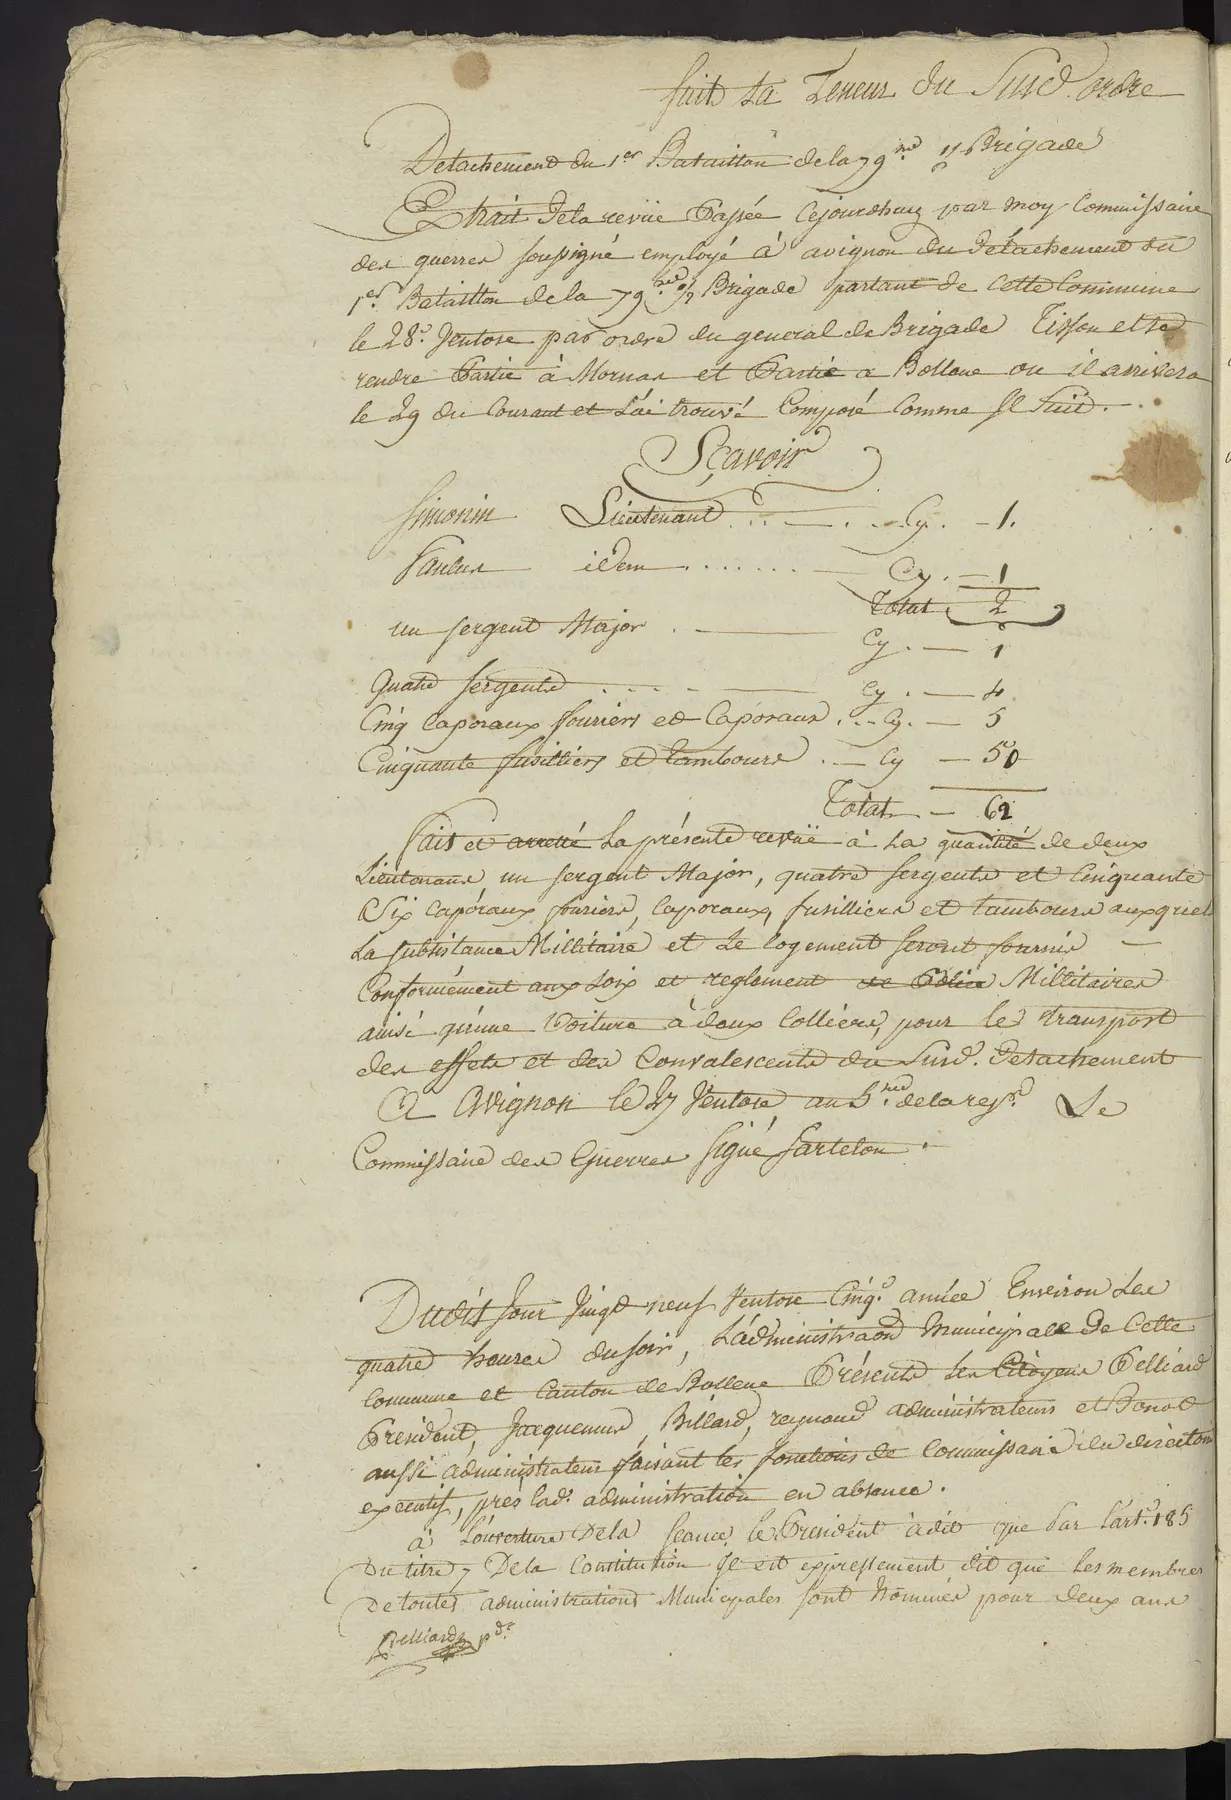 suit La Teneur du Susd. ordre
Detachement du 1er Bataillon de la 79me ½ Brigade
Extrait de la revüe Passée cejourdhuy par moy Commissaire
des guerres soussigné employé à avignon du detachement du
1er Bataillon de la 79me ½ Brigade partant de cette Commune
le 28e Ventose par ordre du general de Brigade Tisson et se
rendre Partie à Mornas et Partie a Bollene ou il arrivera
le 29 du Courant et L'ai trouvé Composé Comme Il Suit.
Sçavoir
Simonin Lieutenant Cy. 1.
Paulus idem Cy. 1
Total 2
un sergent Major Cy. 1
Quatre sergents Cy. 4
Cinq Caporaux fouriers et Caporaux Cy. 5
Cinquante fusilliers et tambours Cy 50
Total 62
Fait et arretté La présente revüe à La quantité de deux
Lieutenans, un sergent Major, quatre sergents et Cinquante
Six caporaux fouriers, caporaux, fusilliers et tambours auxquels
La subsistance Millitaire et Le logement seront fournis
Conformément aux Loix et reglement de Police Millitaires
ainsi qu'une Voiture à deux Colliers, pour le transport
des effets et des Convalescents du Susd. Detachement
A Avignon le 27 Ventose an 5me de la rep.e Le
Commissaire des Guerres Signé Sartelon.
Dudit Jour Vingt neuf Ventose Cinq.e année Environ Les
quatre heures du soir, L'administraon Municipale de Cette
Commune et Canton de Bollene Présents Les Citoyens Pelliard
President, Jacquemus, Billard, reynaud administrateurs et Bonot
aussi administrateur faisant les fonctions de Commissaire du directoire
executif, près lad. administration en absence.
à L'ouverture De la seance, le President à dit que Par L'art.e 185
Du titre 7 De la Constitution Il est expressement dit que Les membres
De toutes administrations Municipales sont Nommés pour deux ans
Pelliard pdt